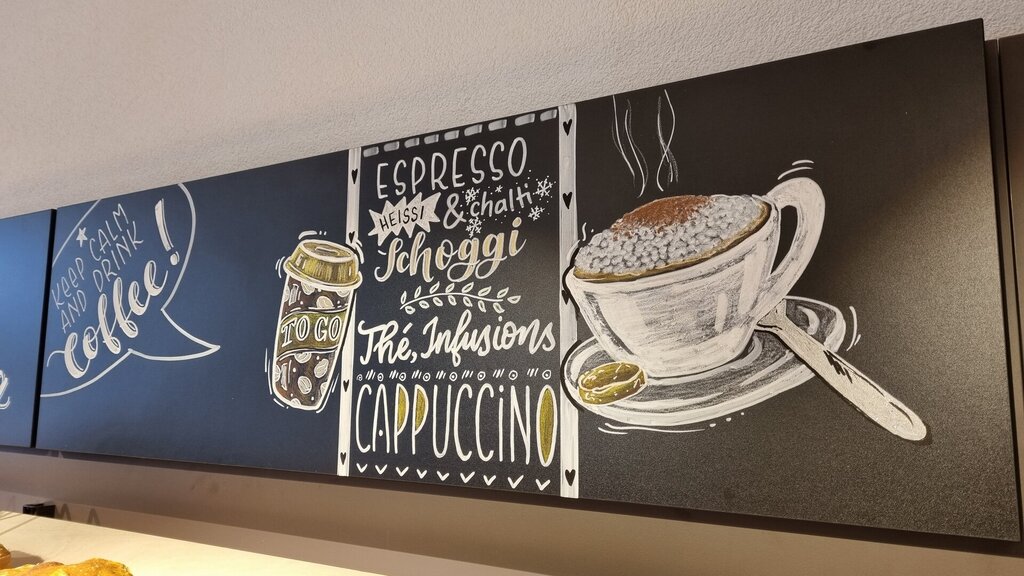 KEEP CALM
AND DRINK
coffee!
TO GO
ESPRESSO
HEISSI & chalti
Schoggi
Thé, Infusions
CAPPUCCINO